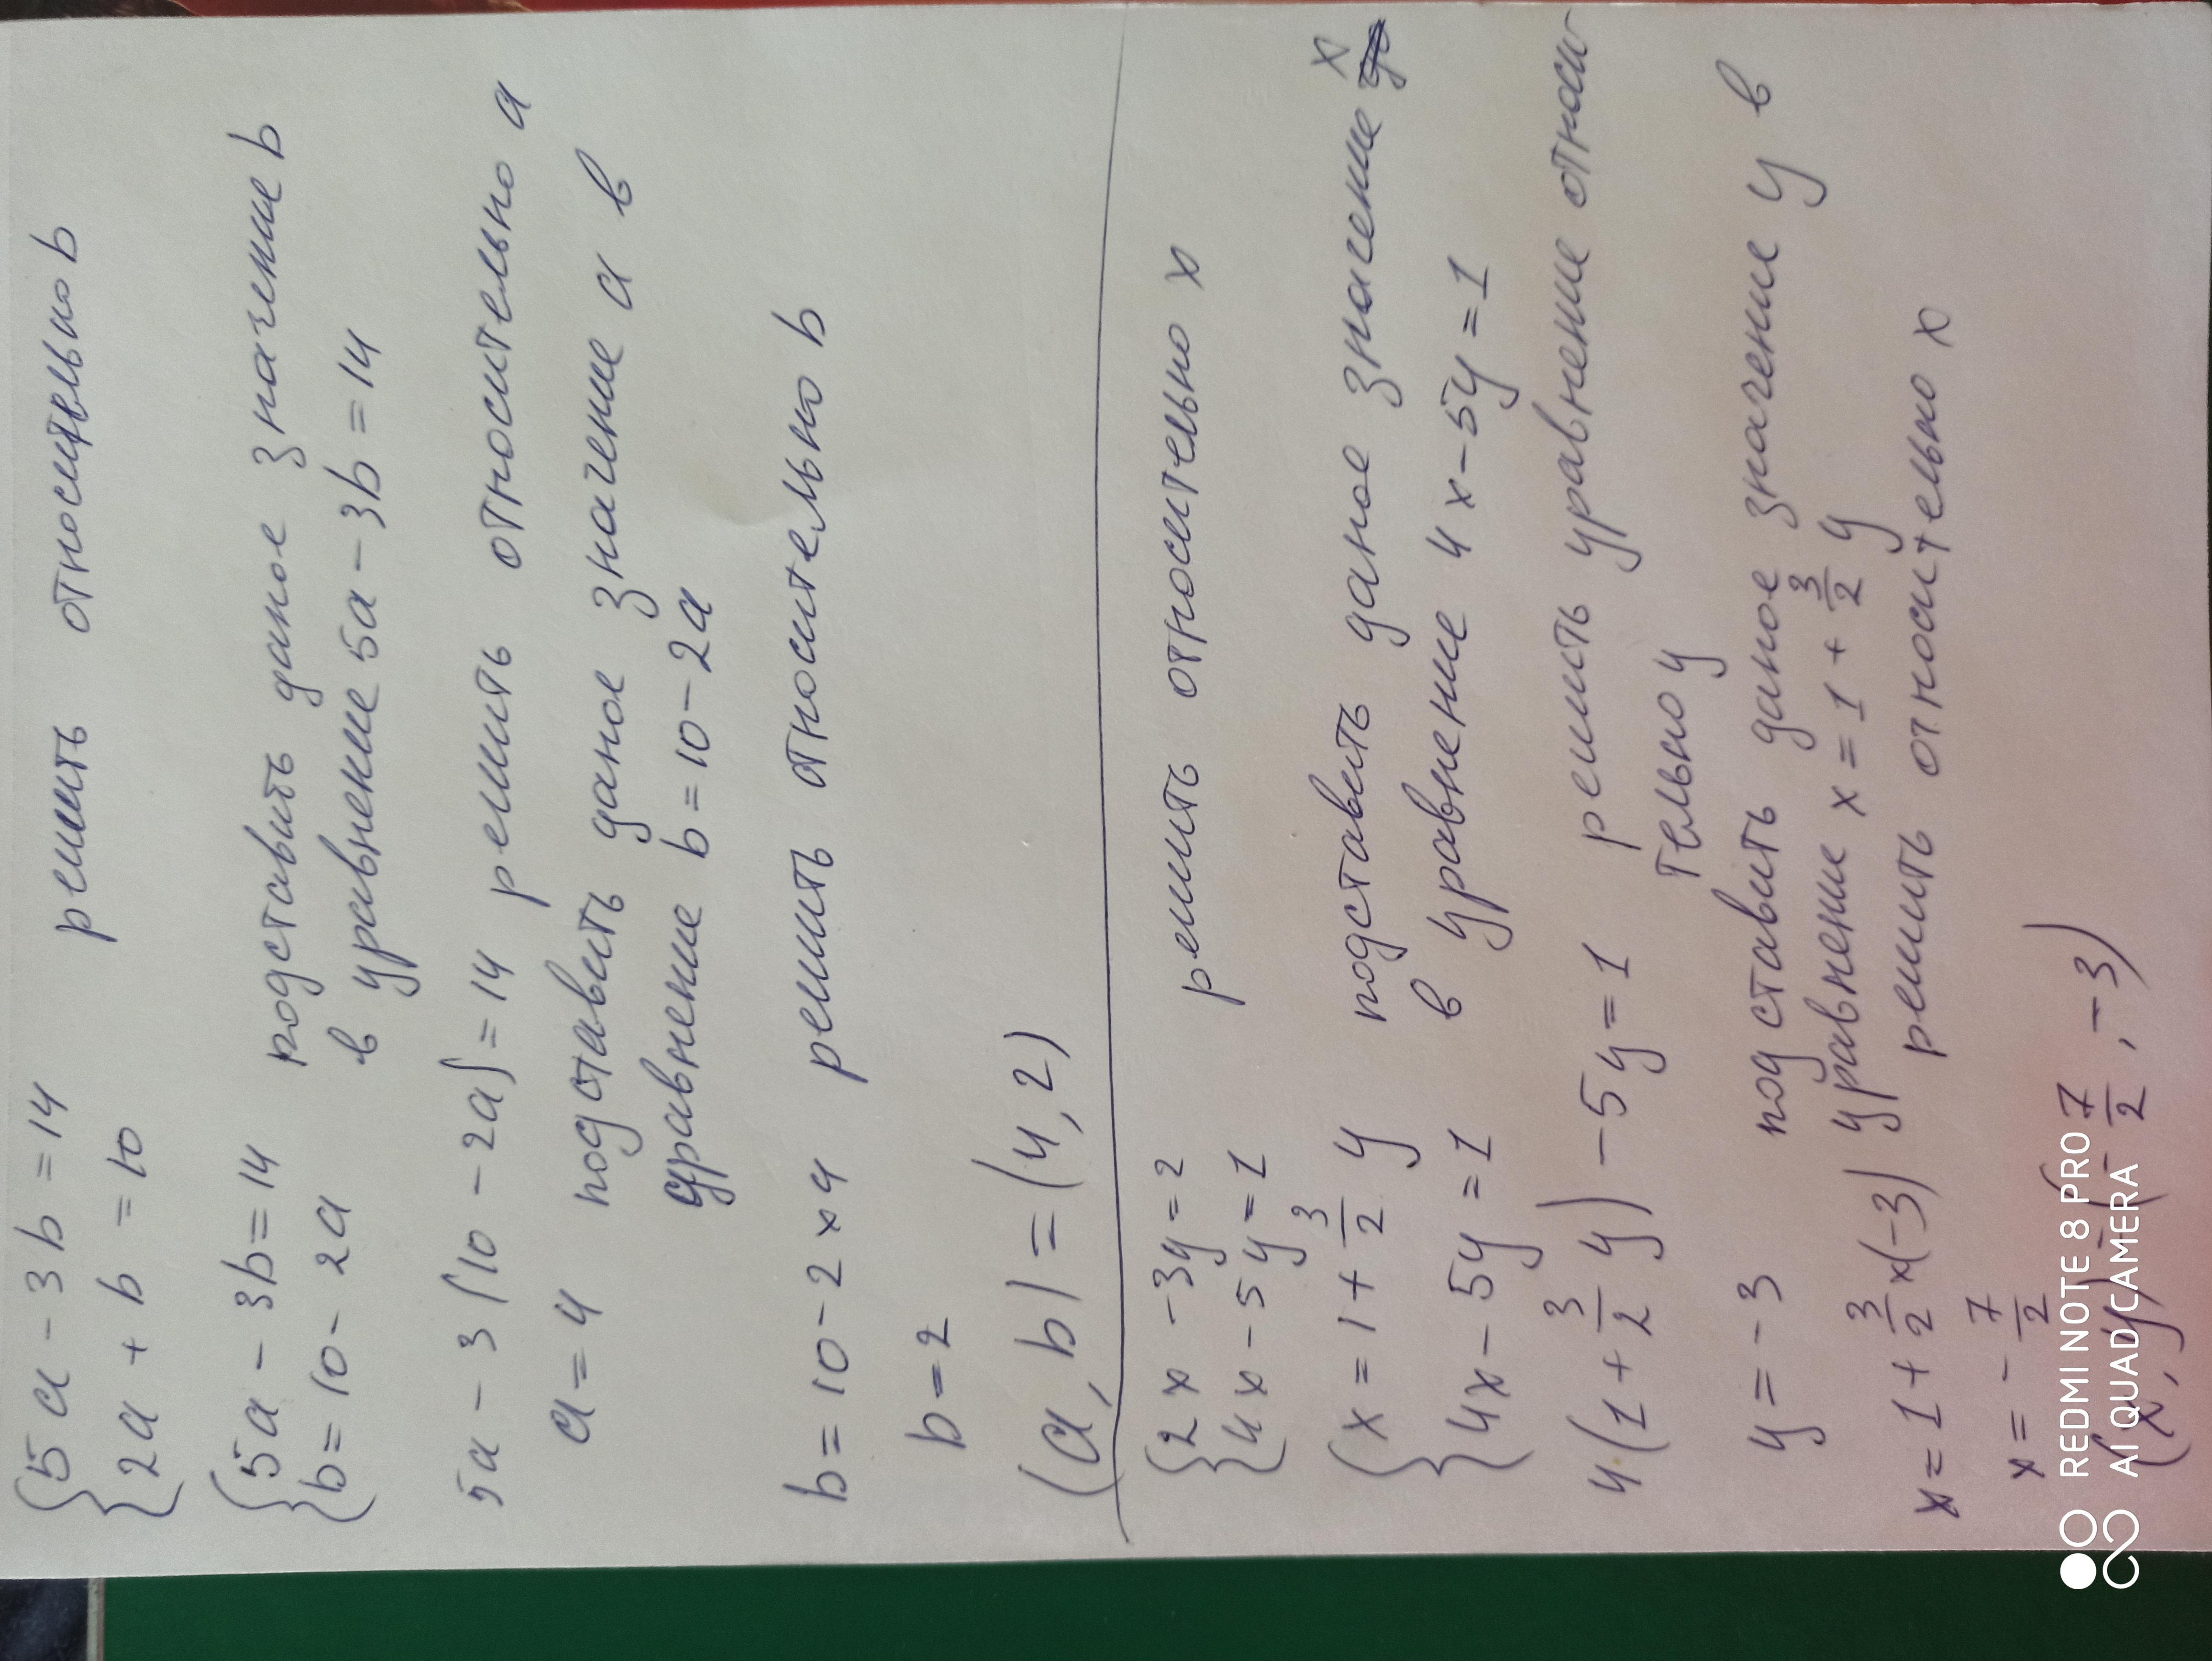 {5a - 3b = 14 решить относительно b
{2a + b = 10
{5a - 3b = 14 подставить даное значение b
{b = 10 - 2a в уравнение 5a - 3b = 14
5a - 3(10 - 2a) = 14 решить относительно a
a = 4 подставить даное значение a в
уравнение b = 10 - 2a
b = 10 - 2 × 4 решить относительно b
b = 2
(a, b) = (4, 2)
{2x - 3y = 2 решить относительно x
{4x - 5y = 1
{x = 1 + 3/2 y подставить даное значение x
{4x - 5y = 1 в уравнение 4x - 5y = 1
4(1 + 3/2 y) - 5y = 1 решить уравнение относи
тельно y
y = - 3 подставить даное значение y в
уравнение x = 1 + 3/2 y
x = 1 + 3/2 × (-3) решить относительно x
x = - 7/2
(x, y) = (- 7/2, -3)
REDMI NOTE 8 PRO
AI QUAD CAMERA